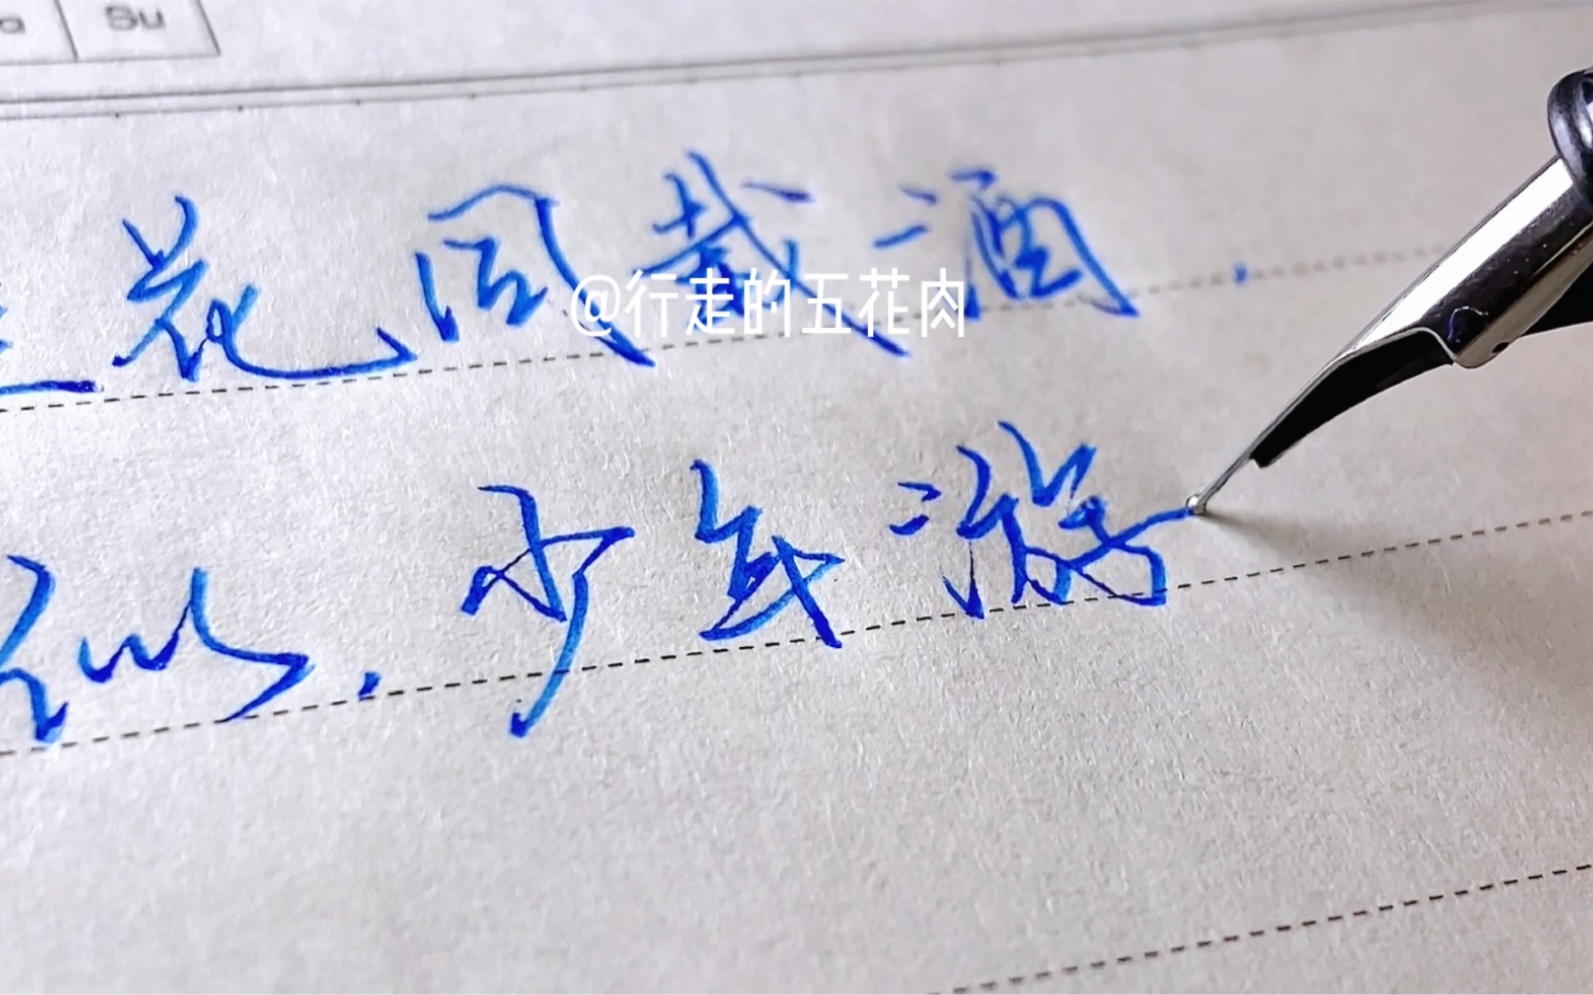 Su
花同载酒.
@行走的五花肉
似.少年游